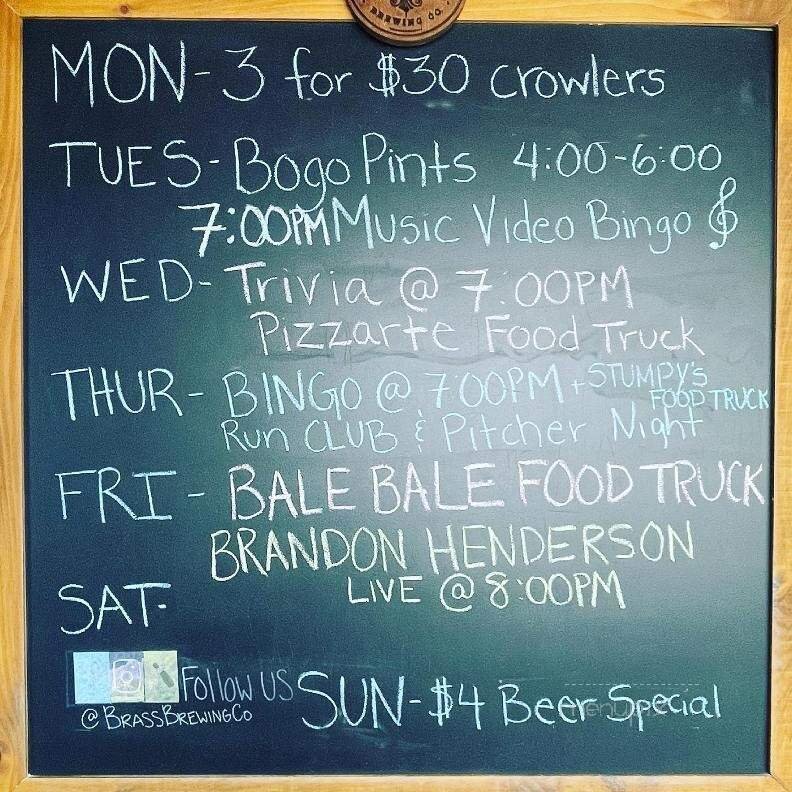 BREWING CO.
MON - 3 for $30 crowlers
TUES - Bogo Pints 4:00-6:00
7:00PM Music Video Bingo
WED - Trivia @ 7:00PM
Pizzarte Food Truck
THUR - BINGO @ 700PM + STUMPY'S FOOD TRUCK
Run CLUB & Pitcher Night
FRI - BALE BALE FOOD TRUCK
BRANDON HENDERSON
LIVE @ 8:00PM
SAT-
Follow US
@BRASSBREWINGCO
SUN - $4 Beer Special
menupix